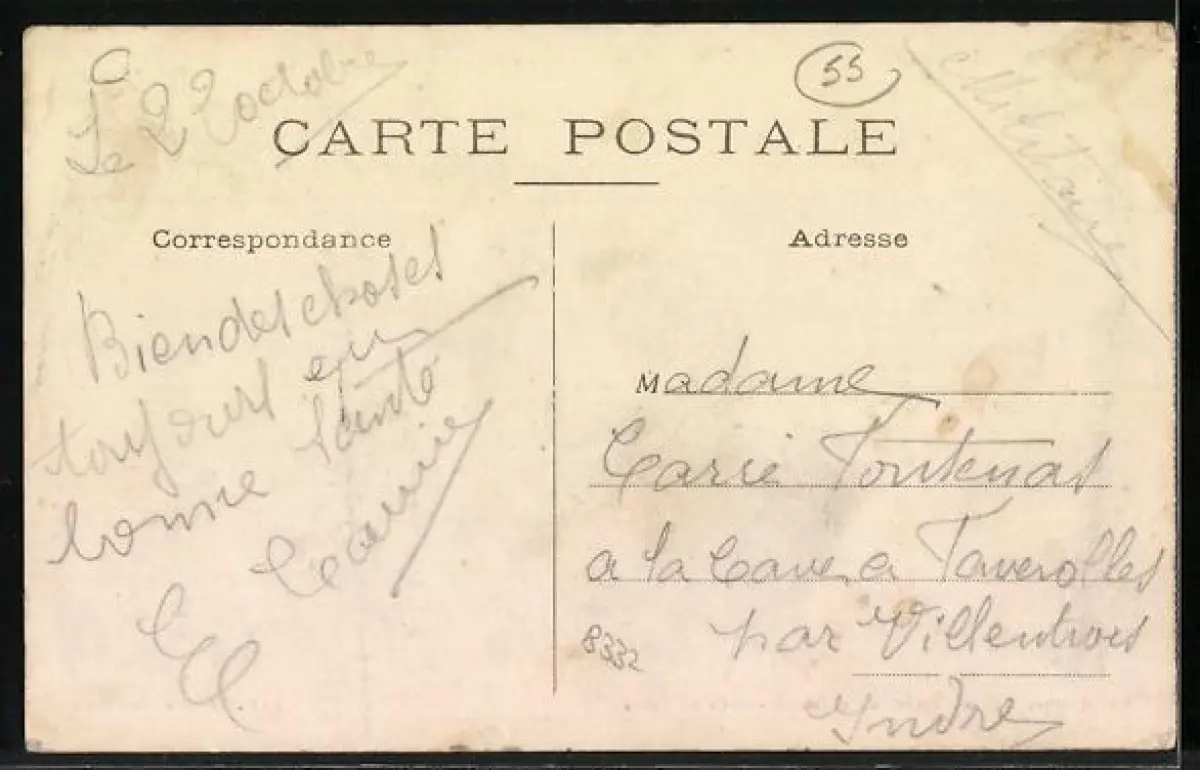 Le 22 octobre
55
Militaire
CARTE POSTALE
Correspondance
Adresse
Bien des choses
toujours en
bonne santé
Madame
Carré Fontenas
a la Cave a Taverolles
par Villentrois
Indre
8332